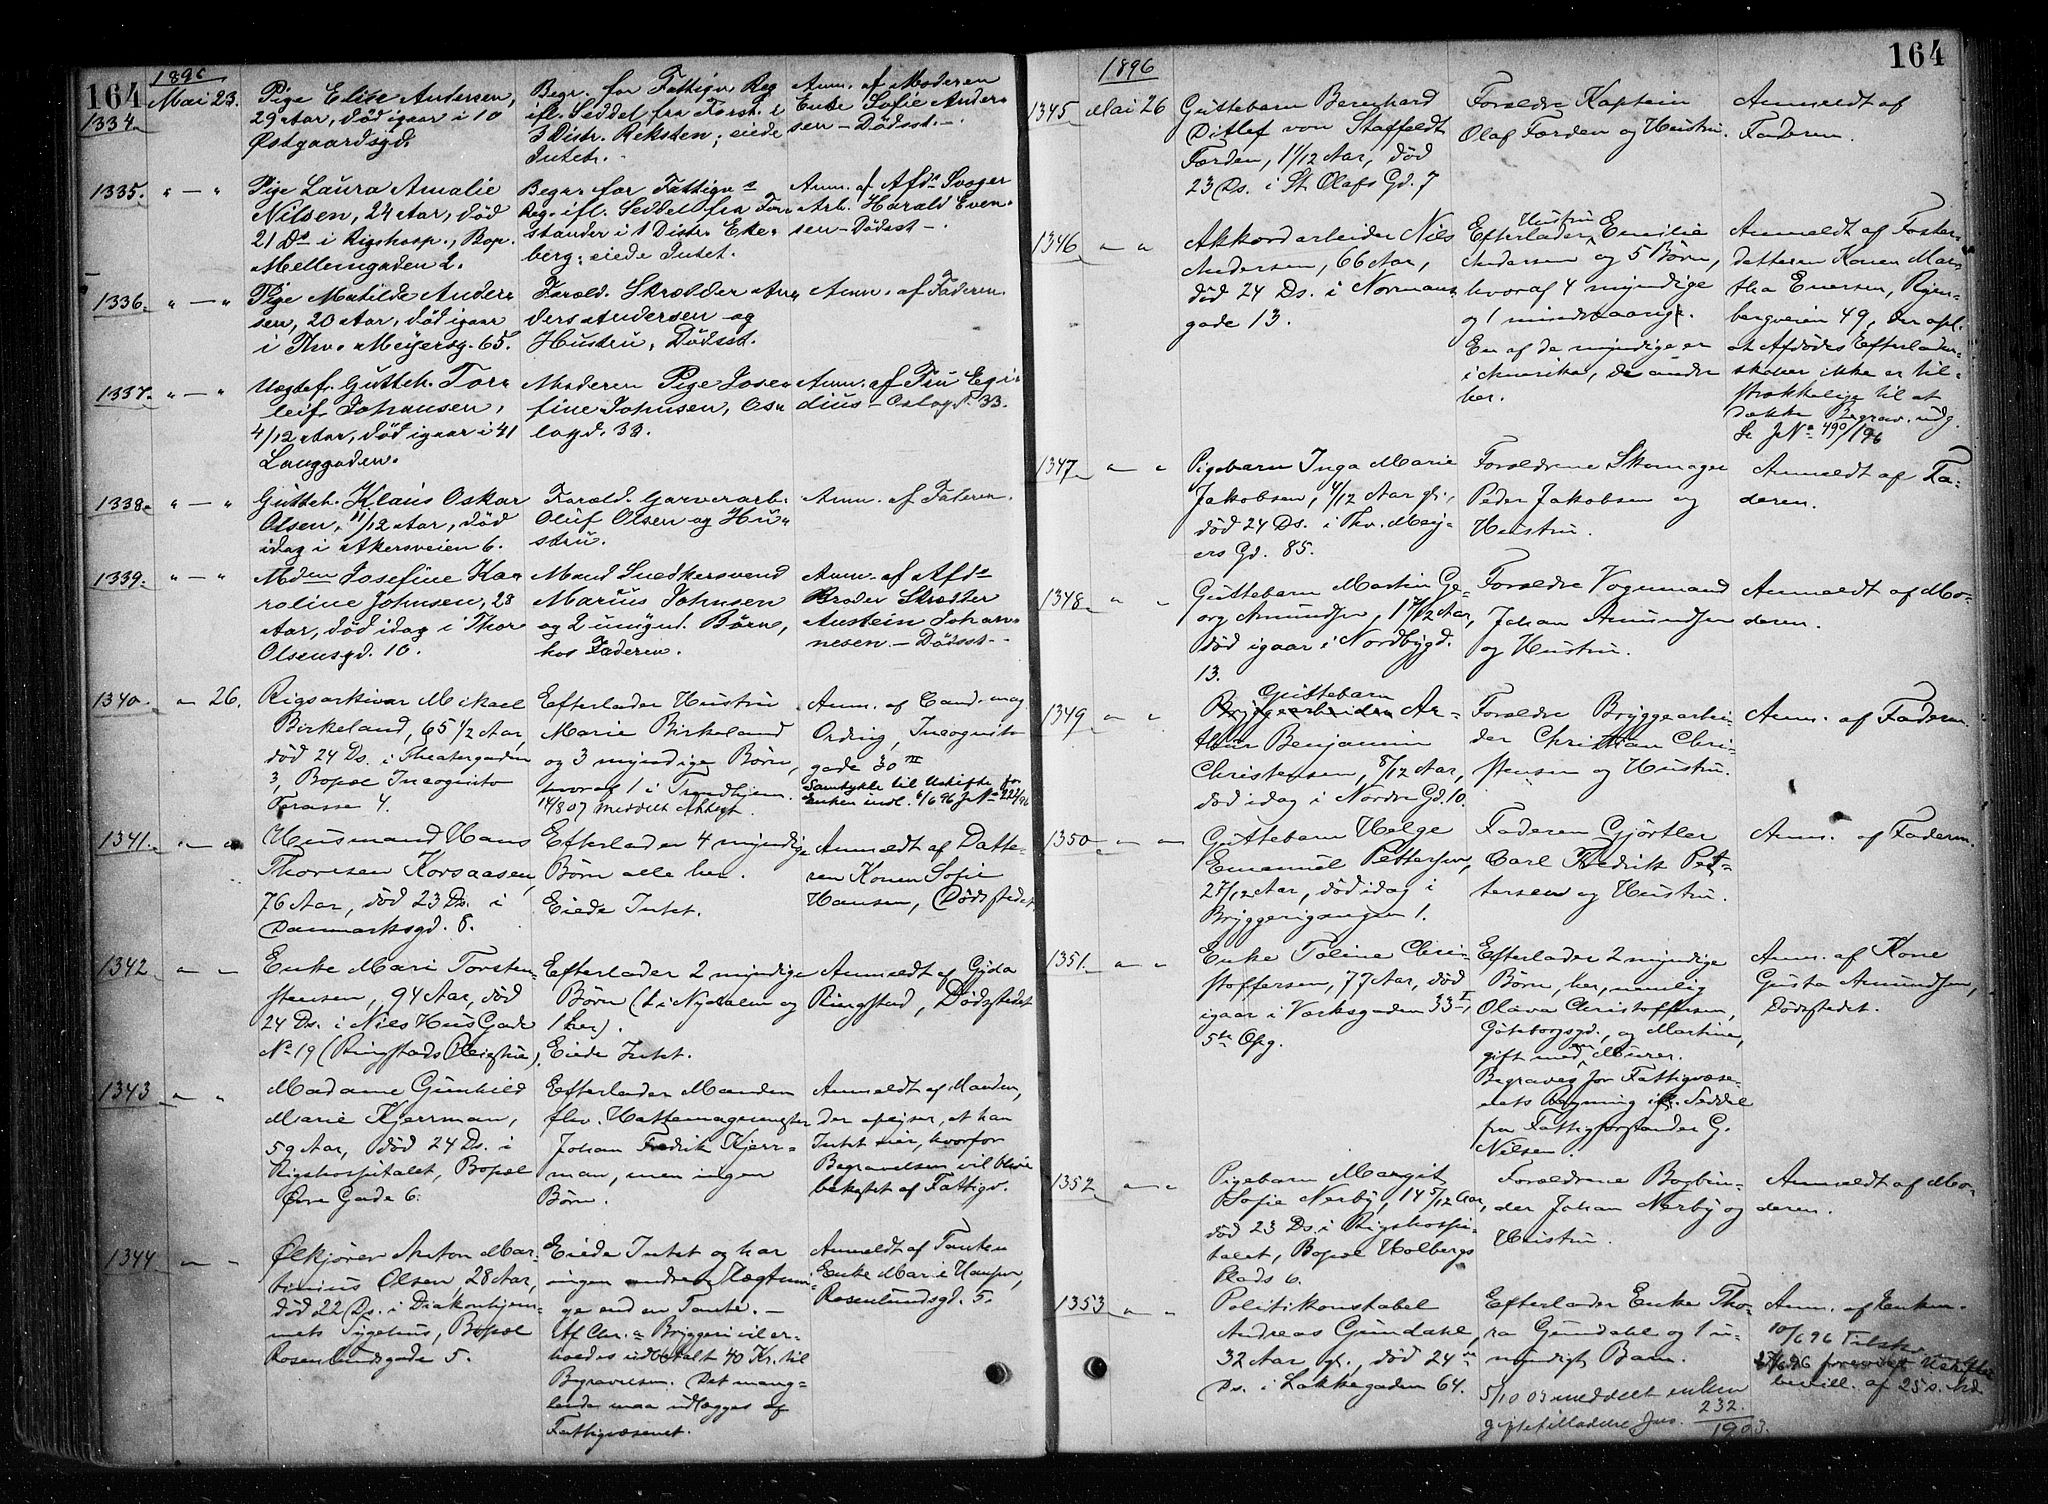 164
1896
Mai 23.
1334
Pige Elise Andersen,
29 Aar, død igaar i 10
Østgaardsgd.
Begr. for Fattigv. Reg
ifl. Seddel fra Forst. i
3 Distr. Reksten; eiede
Intet.
Anm. af Moderen
Enke Sofie Ander-
sen - Dødsst. -
1335. " — "
Pige Laura Amalie
Nilsen, 24 Aar, død
21 Ds i Rigshosp., Bop.
Mellemgaden 2.
Begr. for Fattigv.s
Reg. ifl. Seddel fra For-
stander i 1 Distr. Eke-
berg; eiede Intet.
Anm. af Afd.s Svoger
Arb. Harald Even-
sen - Dødsst -.
1336. " — "
Pige Matilde Ander-
sen, 20 Aar, død igaar
i Thv. Meyersg. 65.
Foræld. Skrædder An-
ders Andersen og
Hustru, Dødsst.
Anm. af Faderen.
1337. " — "
Uægtef. Gutteb. Tor-
leif Johansen,
4/12 Aar, død igaar i 41
Langgaden.
Moderen Pige Jose-
fine Johnsen, Os-
logd. 33.
Anm. af Fru Egi-
dius - Oslogd. 33.
1338. " — "
Gutteb. Klaus Oskar
Olsen, 11/12 Aar, død
idag i Akersveien 6.
Foræld. Garverarb.
Oluf Olsen og Hu-
stru.
Anm. af Faderen.
1339. " — "
Mden Josefine Ka-
roline Johnsen, 28
Aar, død idag i Thor
Olsensgd. 10.
Mand Snedkersvend
Marius Johnsen
og 2 umynd. Børn,
hos Faderen.
Anm. af Afd.s
Broder Skræder
Austein Johan-
nesen. - Dødsst. -
1340. " 26.
Rigsarkivar Mikael
Birkeland, 65 1/2 Aar,
død 24 Ds. i Theatergaden
3, Bopæl Incognito
Terasse 4.
Efterlader Hustru
Marie Birkeland
og 3 myndige Børn,
hvoraf 1 i Trondhjem.
14/8 07 meddelt
Anm. af Cand. mag
Ording, Incognito
gade 30 III
Samtykke til Uskifte for
Enken indl. 6/6 96 J No 222/96
1341. " "
Husmand Hans
Thoresen Korsaasen,
76 Aar, død 23 Ds. i
Danmarksgd. 8.
Efterlader 4 myndige
Børn alle her.
Eiede Intet.
Anmeldt af Datte-
ren Konen Sofie
Hansen, Dødsstedet.
1342 " "
Enke Mari Torsten-
stensen, 94 Aar, død
24 Ds. i Niels Hus Gade
No 19 (Ringstads Pleiestue).
Efterlader 2 myndige
Børn (1 i Nydalen og
1 her).
Eiede Intet.
Anmeldt af Gyda
Ringstad, Dødsstedet
1343 " "
Madame Gunhild
Marie Kjerrman,
59 Aar, død 24 Ds. i
Rigshospitalet, Bopæl
Øvre Gade 6.
Efterlader Manden
flv. Hattemagermester
Johan Fredrik Kjerr-
man, men ingen
Børn.
Anmeldt af Manden,
der opgiver, at han
Intet eier, hvorfor
Begravelsen vil blive
bekostet af Fattigv.
1344 " "
Ølkjører Anton Mar-
tinius Olsen, 28 Aar,
død 22 Ds. i Diakonhjem-
mets Sygehus, Bopæl
Rosenlundsgade 5.
Eiede Intet og har
ingen andre Slægtnin-
ge end en Tante. -
Af Chr.a Bryggeri vil er-
holdes udbetalt 40 Kr. til
Begravelsen. Det mang-
lende maa udlægges af
Fattigvæsenet.
Anmeldt af Tanten
Enke Marie Hansen,
Rosenlundsgd. 5.
164
1896
1345 Mai 26
Guttebarn Bernhard
Ditlef von Staffeldt
Førden, 1 1/12 Aar, død
23 Ds. i St. Olafs Gd. 7
Forældre Kaptein
Olaf Førden og Hustru.
Anmeldt af
Faderen.
1346 " "
Akkordarbeider Nils
Andersen, 66 Aar,
død 24 Ds. i Normans-
gade 13.
Efterlader Hustru Emilie
Andersen og 5 Børn,
hvoraf 4 myndige
og 1 mindreaarig.
En af de myndige er
i Amerika, de andre
her.
Anmeldt af Foster-
datteren Konen Mar-
tha Enersen, Ryen-
bergveien 49, der opl.
at Afdødes Efterladen-
skaber ikke er til-
strækkelige til at
dække Begrav. udg.
Se J No 490/96
1347 " "
Pigebarn Inga Marie
Jakobsen, 4/12 Aar gl.,
død 24 Ds. i Thv. Mey-
ers Gd. 85.
Forældrene Skomager
Peder Jakobsen og
Hustru.
Anmeldt af Fa-
deren.
1348 " "
Guttebarn Martin Ge-
org Amundsen, 1 7/12 Aar,
død igaar i Nordbygd.
13.
Forældre Vognmand
Johan Amundsen
og Hustru.
Anmeldt af Mo-
deren.
1349 " "
Guttebarn
Bryggearbeideren Ar-
thur Benjamin
Christensen, 8/12 Aar,
død idag i Nordre Gd. 10.
Forældre Bryggearbei-
der Christian Chri-
stensen og Hustru.
Anm. af Faderen.
1350 " "
Guttebarn Helge
Emanuel Pettersen,
2 7/12 Aar, død idag i
Bryggerigangen 1.
Faderen Gjørtler
Carl Fredrik Pet-
tersen og Hustru.
Anm. af Faderen.
1351. " "
Enke Toline Chri-
stoffersen, 77 Aar, død
igaar i Værksgaden 33 I,
5te Opg.
Efterlader 2 myndige
Børn, her, nemlig
Olava Christoffersen,
Göteborgsgd., og Martine,
gift med en Murer.
Begraves for Fattigvæse-
nets Regning ifl. Seddel
fra Fattigforstander G.
Nilsen.
Anm. af Kone
Gusta Amundsen,
Dødsstedet.
1352 " "
Pigebarn Margit
Sofie Nerby, 14 5/12 Aar,
død 23 Ds. i Rigshospi-
talet, Bopæl Holbergs
Plads 6.
Forældrene Bogbin-
der Johan Nerby og
Hustru.
Anmeldt af Mo-
deren.
1353 " "
Politikonstabel
Andreas Gundahl,
32 Aar gl., død 24de
Ds. i Lakkegaden 64.
Efterlader Enke Tho-
ra Gundahl og 1 u-
myndigt Barn.
5/10 03 meddelt enken
giftetilladelse, Jno. 232/1903.
Anm. af Enken.
10/6 96 Tilsko.
bevill. af 25 s. Md